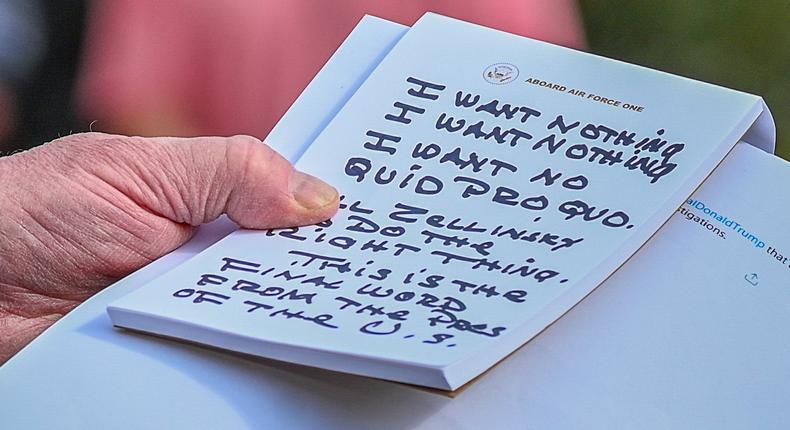 ABOARD AIR FORCE ONE
I WANT NOTHING
I WANT NOTHING
I WANT NO
QUID PRO QUO.
LL ZELLINSKY
DO THE
RIGHT THING.
.THIS IS THE
FINAL WORD
FROM THE PRES
OF THE U.S.
alDonaldTrump that
tigations.